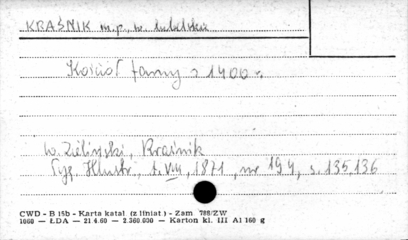 KRAŚNIK m.p., w. lubelskie
Kościół farny z 1400 r.
W. Zieliński, Kraśnik
Tyg. Illustr., t. VIII, 1871, nr 194, s. 135, 136
CWD - B 15b - Karta katal. (z liniat) - Zam 788/ZW
1060 — ŁDA — 21.4.60 - 2.360.000 — Karton kl. III A1 160 g